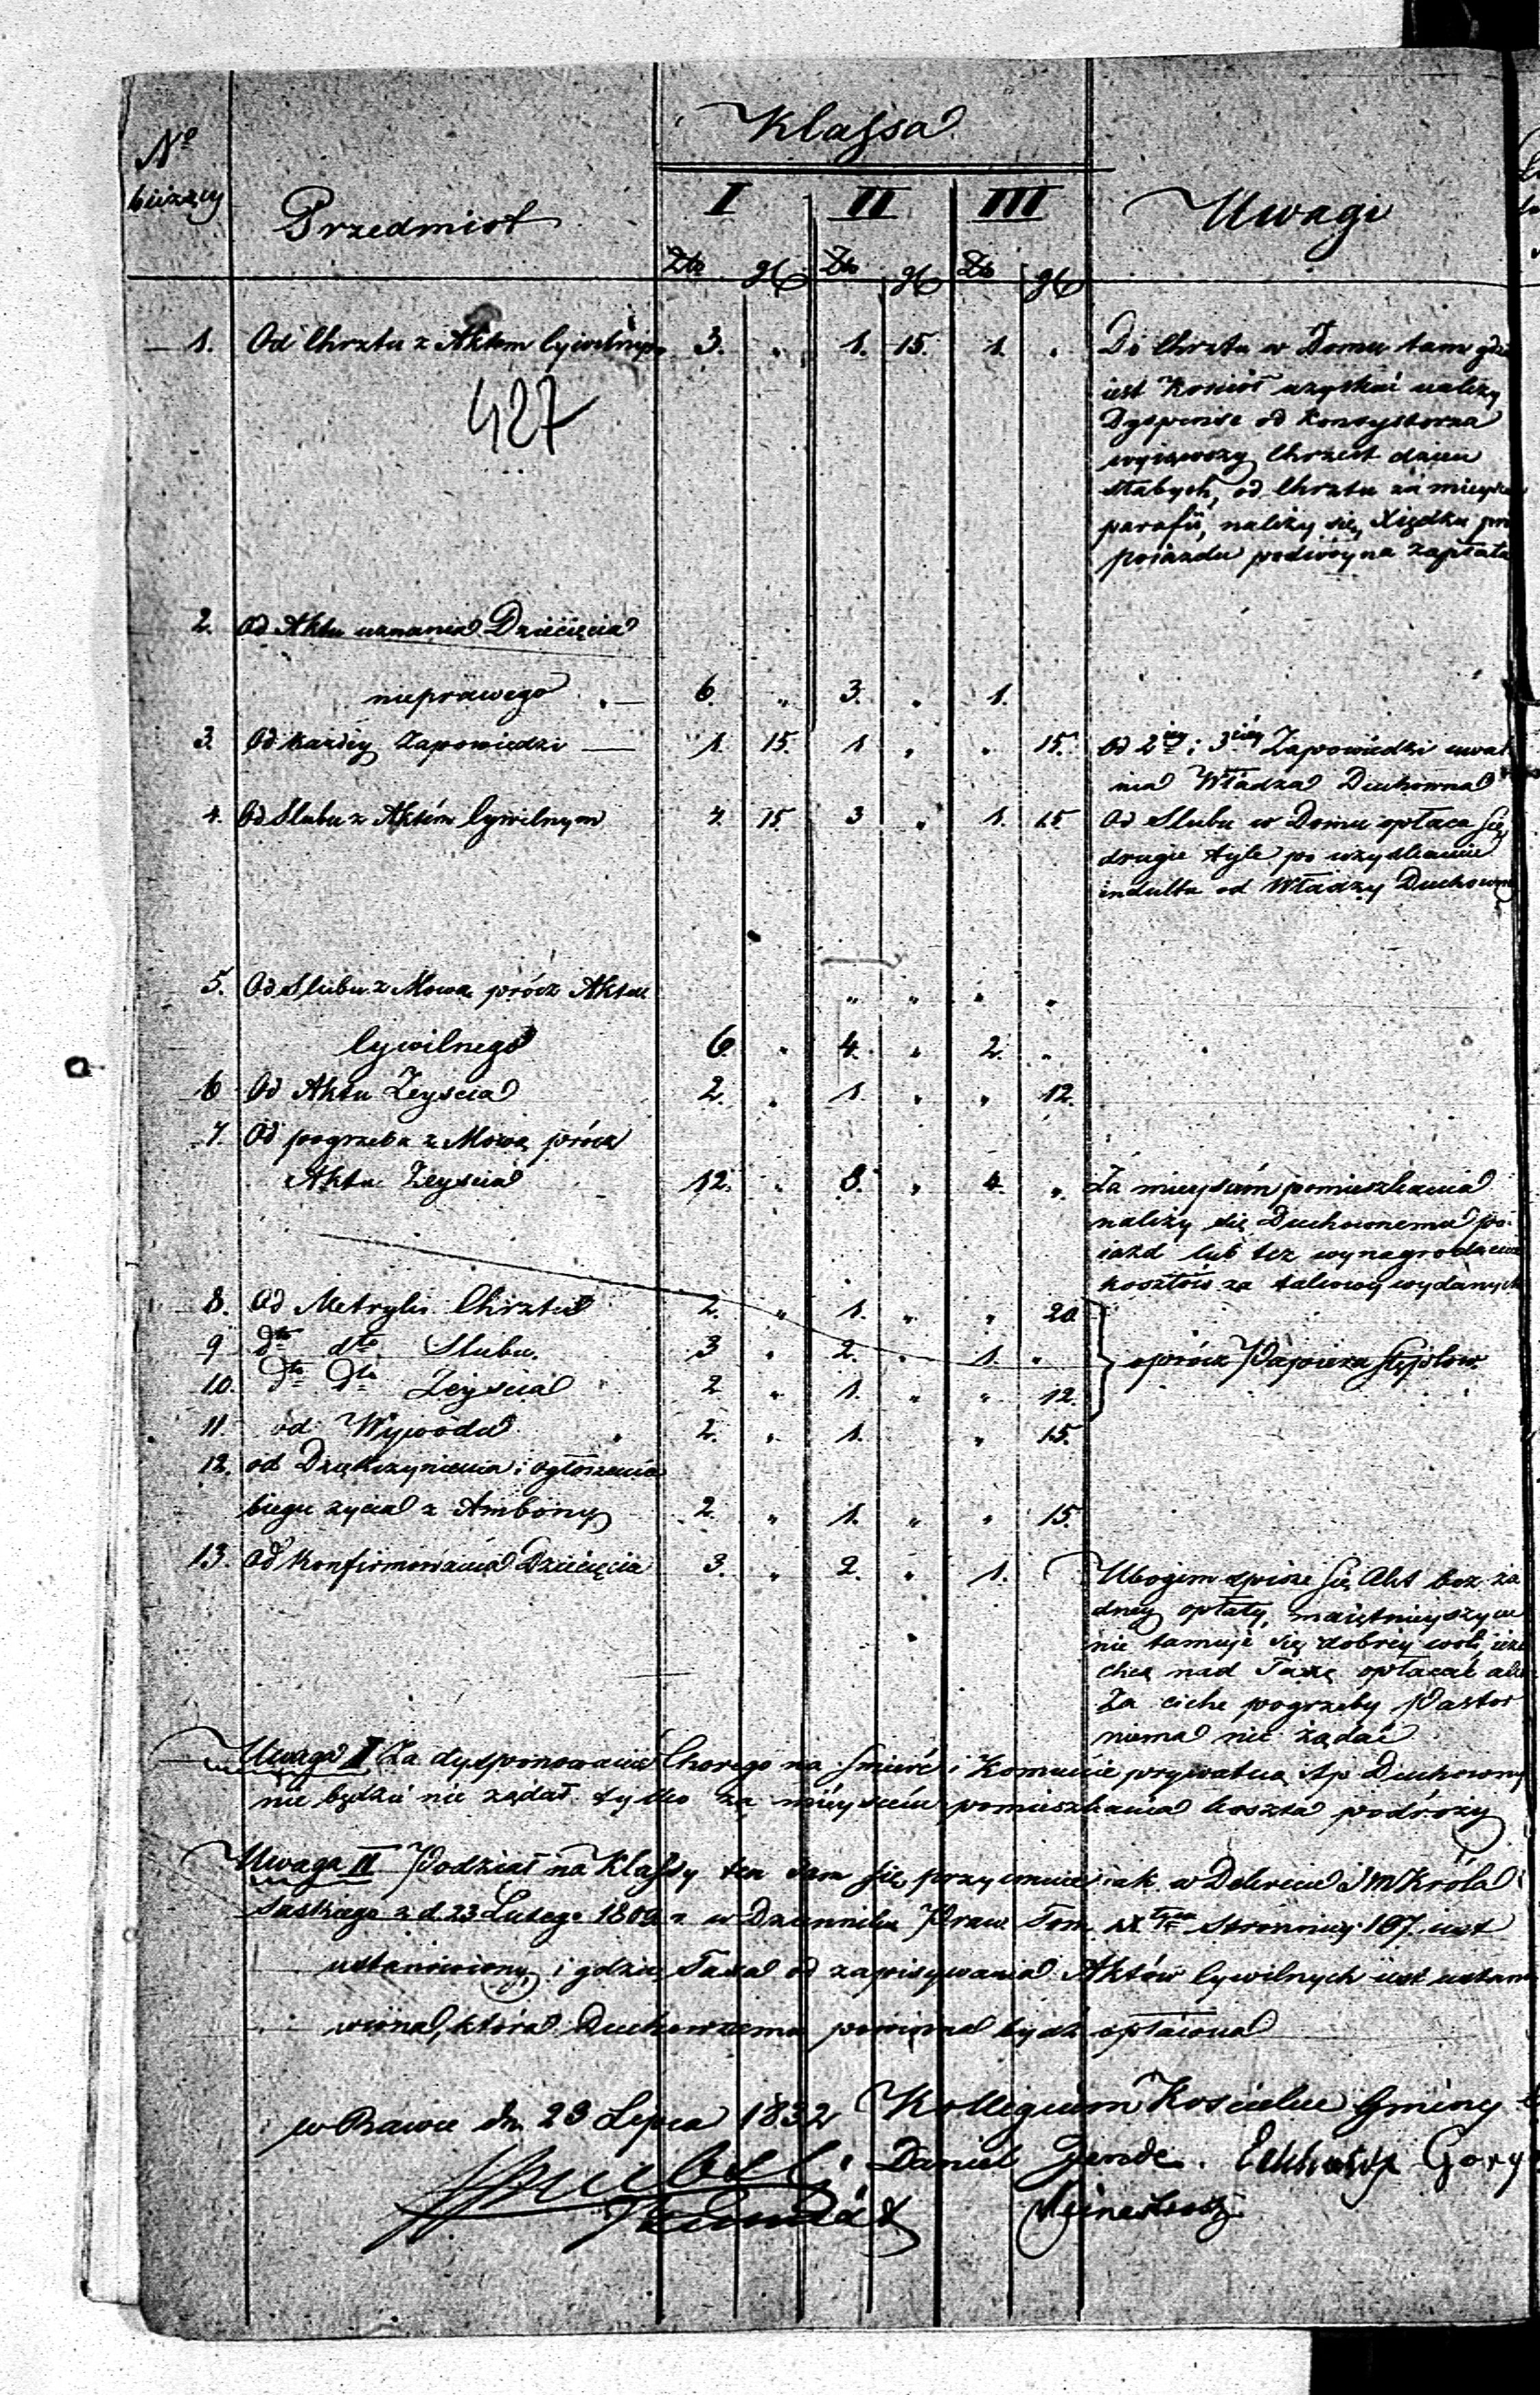 Klassa
No
bieżący
Przedmiot
I II III
Uwagi
Złp gr Złp gr Złp gr
1. Od Chrztu z Aktem Cywilnym 3. „ 1. 15. 1. „ Do Chrztu w Domu tam gdzie
427
iest Kosciół uzyskać należy
Dyspensę od Konsystorza
wyiąwszy Chrzest dzieci
słabych, od Chrztu za mieysce
parafii, należy się Xiędzu pró
poiazdu podwóyna zapłata
2. Od Aktu uznania Dziecięcia
nieprawego 6. „ 3. „ 1.
3. Od każdey Zapowiedzi 1. 15. 1 „ „ 15. Od 2iey i 3ciey Zapowiedzi uwal
nia Władza Duchowna
4. Od Slubu z Aktem Cywilnym 4. 15. 3 „ 1. 15 Od Slubu w Domu opłaca się
drugie tyle po uzyskaniu
indultu od Władzy Duchowney
5. Od Slubu z Mową prócz Aktu „ „ „ „
Cywilnego 6. „ 4. „ 2. „
6 Od Aktu Zeyscia 2. „ 1. „ „ 12.
7. Od pogrzebu z Mową prócz
Aktu Zeyscia 12. „ 8. „ 4. „ Za mieyscem pomieszkania
należy się Duchownemu po-
iazd lub też wynagrodzenie
kosztów za takowy wydanych
8. Od Metryki Chrztu 2. „ 1. „ „ 20
9 dto dto Slubu. 3 „ 2. „ 1. „ oprócz Papieru Stęplow.
10. Dto Dto Zeyscia 2 „ 1. „ „ 12.
11. od Wywodu 2. „ 1. „ 15.
12. od Dziękczynienia i ogłoszenia
biegu zycia z Ambony 2. „ 1. „ „ 15.
13. Od Konfirmowania Dziecięcia 3. „ 2. „ 1. Ubogim spisze się Akt bez ża
dney opłaty, maiętnieyszym
nie tamuje się dobrey woli, ieże
chcą nad Taxę opłacać ale
Za ciche pogrzeby Pastor
niema nic żądać
Uwaga I Za dysponowanie Chorego na smierć i Komunię prywatną Duchowny
nie będzie nic żądał tylko za mieyscem pomieszkania koszta podróży
Uwaga II Podział na Klassy ten sam się przyimuie iak w Dekrecie JM Króla
Saskiego z d. 23 Lutego 1809 r. w Dzienniku Praw Tom stronnicy 167. iest
ustanowiony i gdzie Taxa od zapisywania Aktów Cywilnych iest ustano
wiona, która Duchownemu powinna bydź opłacona
w Rawie dn. 23 Lipca 1832 Kollegium Koscielne Gminy
Daniel